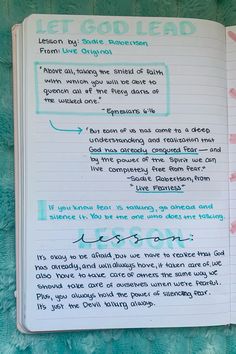 LET GOD LEAD
Lesson by: Sadie Robertson
From: Live Original
"Above all, taking the shield of faith
with which you will be able to
quench all of the fiery darts of
the wicked one."
-Ephesians 6:16
"But each of us has come to a deep
understanding and realization that
God has already conquered fear — and
by the power of the Spirit we can
live completely free from fear."
-Sadie Robertson, from
"Live Fearless"
If you know fear is talking, go ahead and
silence it. You be the one who does the talking.
LESSON
lesson:
It's okay to be afraid, but we have to realize that God
has already, and will always have, it taken care of, we
also have to take care of others the same way we
should take care of ourselves when we're fearful.
Plus, you always hold the power of silencing fear.
It's just the Devil talking always.